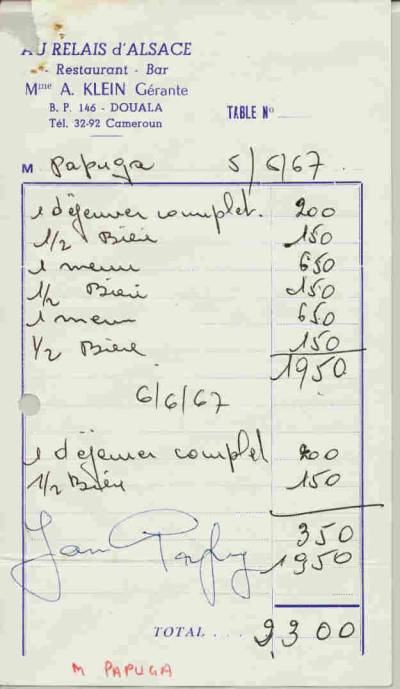 AU RELAIS d'ALSACE
Restaurant - Bar
Mme A. KLEIN Gérante
B. P. 146 - DOUALA
Tél. 32-92 Cameroun
TABLE No
M Papuga 5/6/67
1 déjeuner complet. 200
1/2 Bière 150
1 menu 650
1/2 Bière 150
1 menu 650
1/2 Bière 150
1950
6/6/67
1 déjeuner complet 200
1/2 Bière 150
350
1950
TOTAL . . . 2300
M PAPUGA